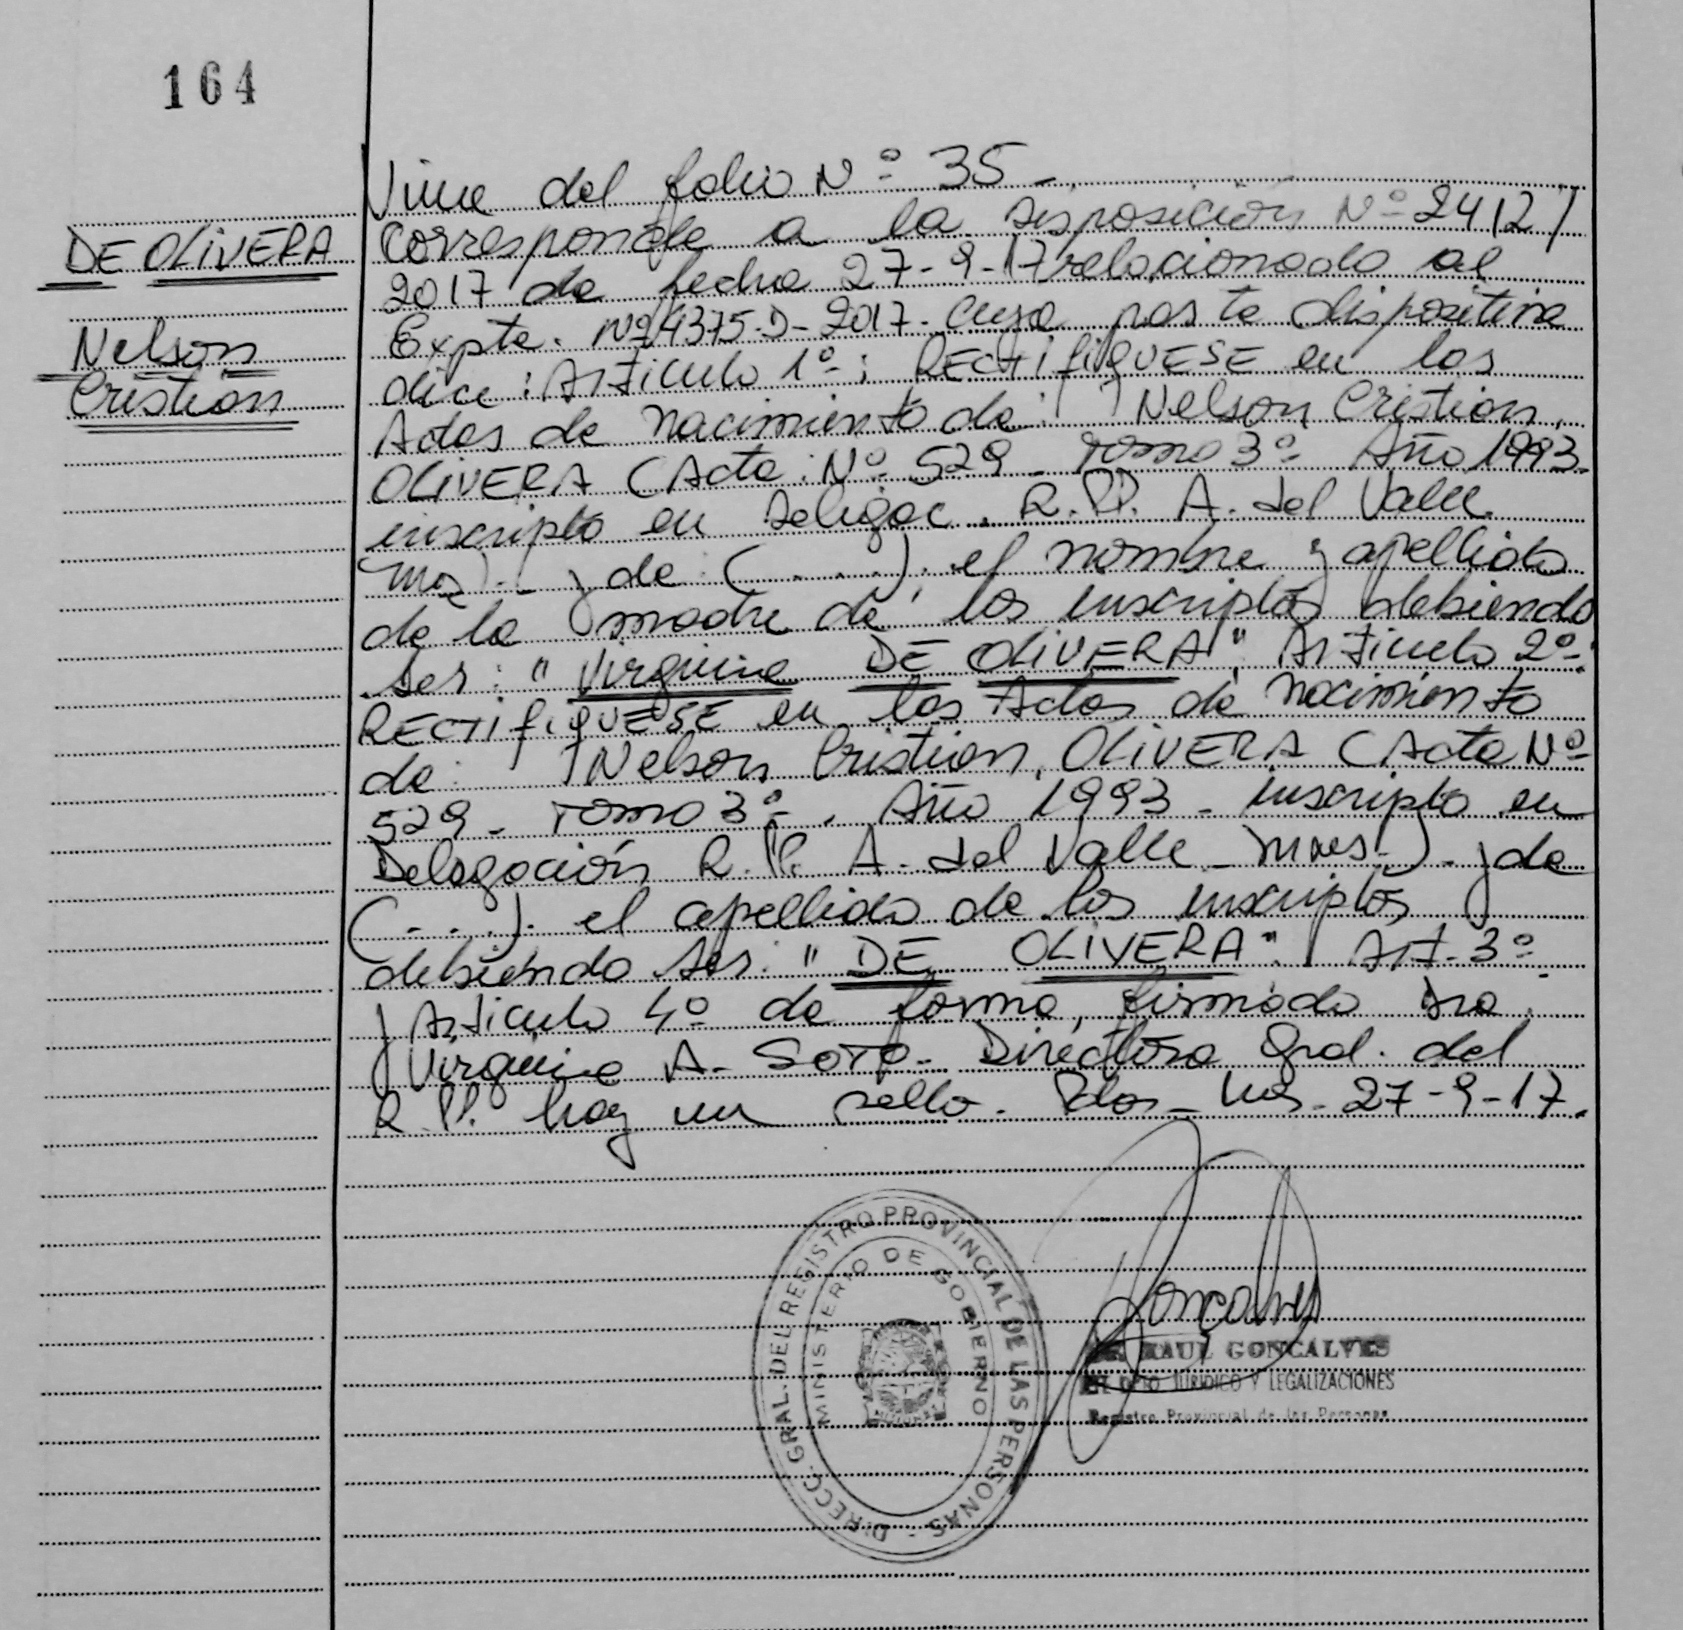 164
DE OLIVERA
Nelson
Cristian
Viene del folio Nº 35 -
Corresponde a la disposición Nº 2412/
2017 de fecha 27-9-17 relacionado al
Expte. Nº 4375-D-2017. Cuya parte dispositiva
dice: Artículo 1º: RECTIFIQUESE en las
Actas de nacimiento de: Nelson Cristian,
OLIVERA (Acta: Nº 529 - Tomo 3º Año 1993-
inscripto en Delegac. R.PP. A. del Valle
Mnes). y de: (.....). el nombre y apellido
de la madre de los inscriptos debiendo
ser: "Virginia DE OLIVERA". Artículo 2º:
RECTIFIQUESE en las Actas de nacimiento
de: Nelson Cristian, OLIVERA (Acta Nº
529 - Tomo 3º. Año 1993 - inscripto en
Delegación R.PP. A. del Valle - Mnes-). y de
(- . . .). el apellido de los inscriptos
debiendo ser: "DE OLIVERA". Art. 3º
y Artículo 4º de forma, firmado Dra.
Virginia A. SOTO - Directora Gral. del
R.PP. hay un sello. Pdas - Mes - 27-9-17.
DIRECC. GRAL. DEL REGISTRO PROVINCIAL DE LAS PERSONAS -
MINISTERIO DE GOBIERNO
Goncalves
RAUL GONCALVES
DPTO. JURIDICO Y LEGALIZACIONES
Registro Provincial de las Personas